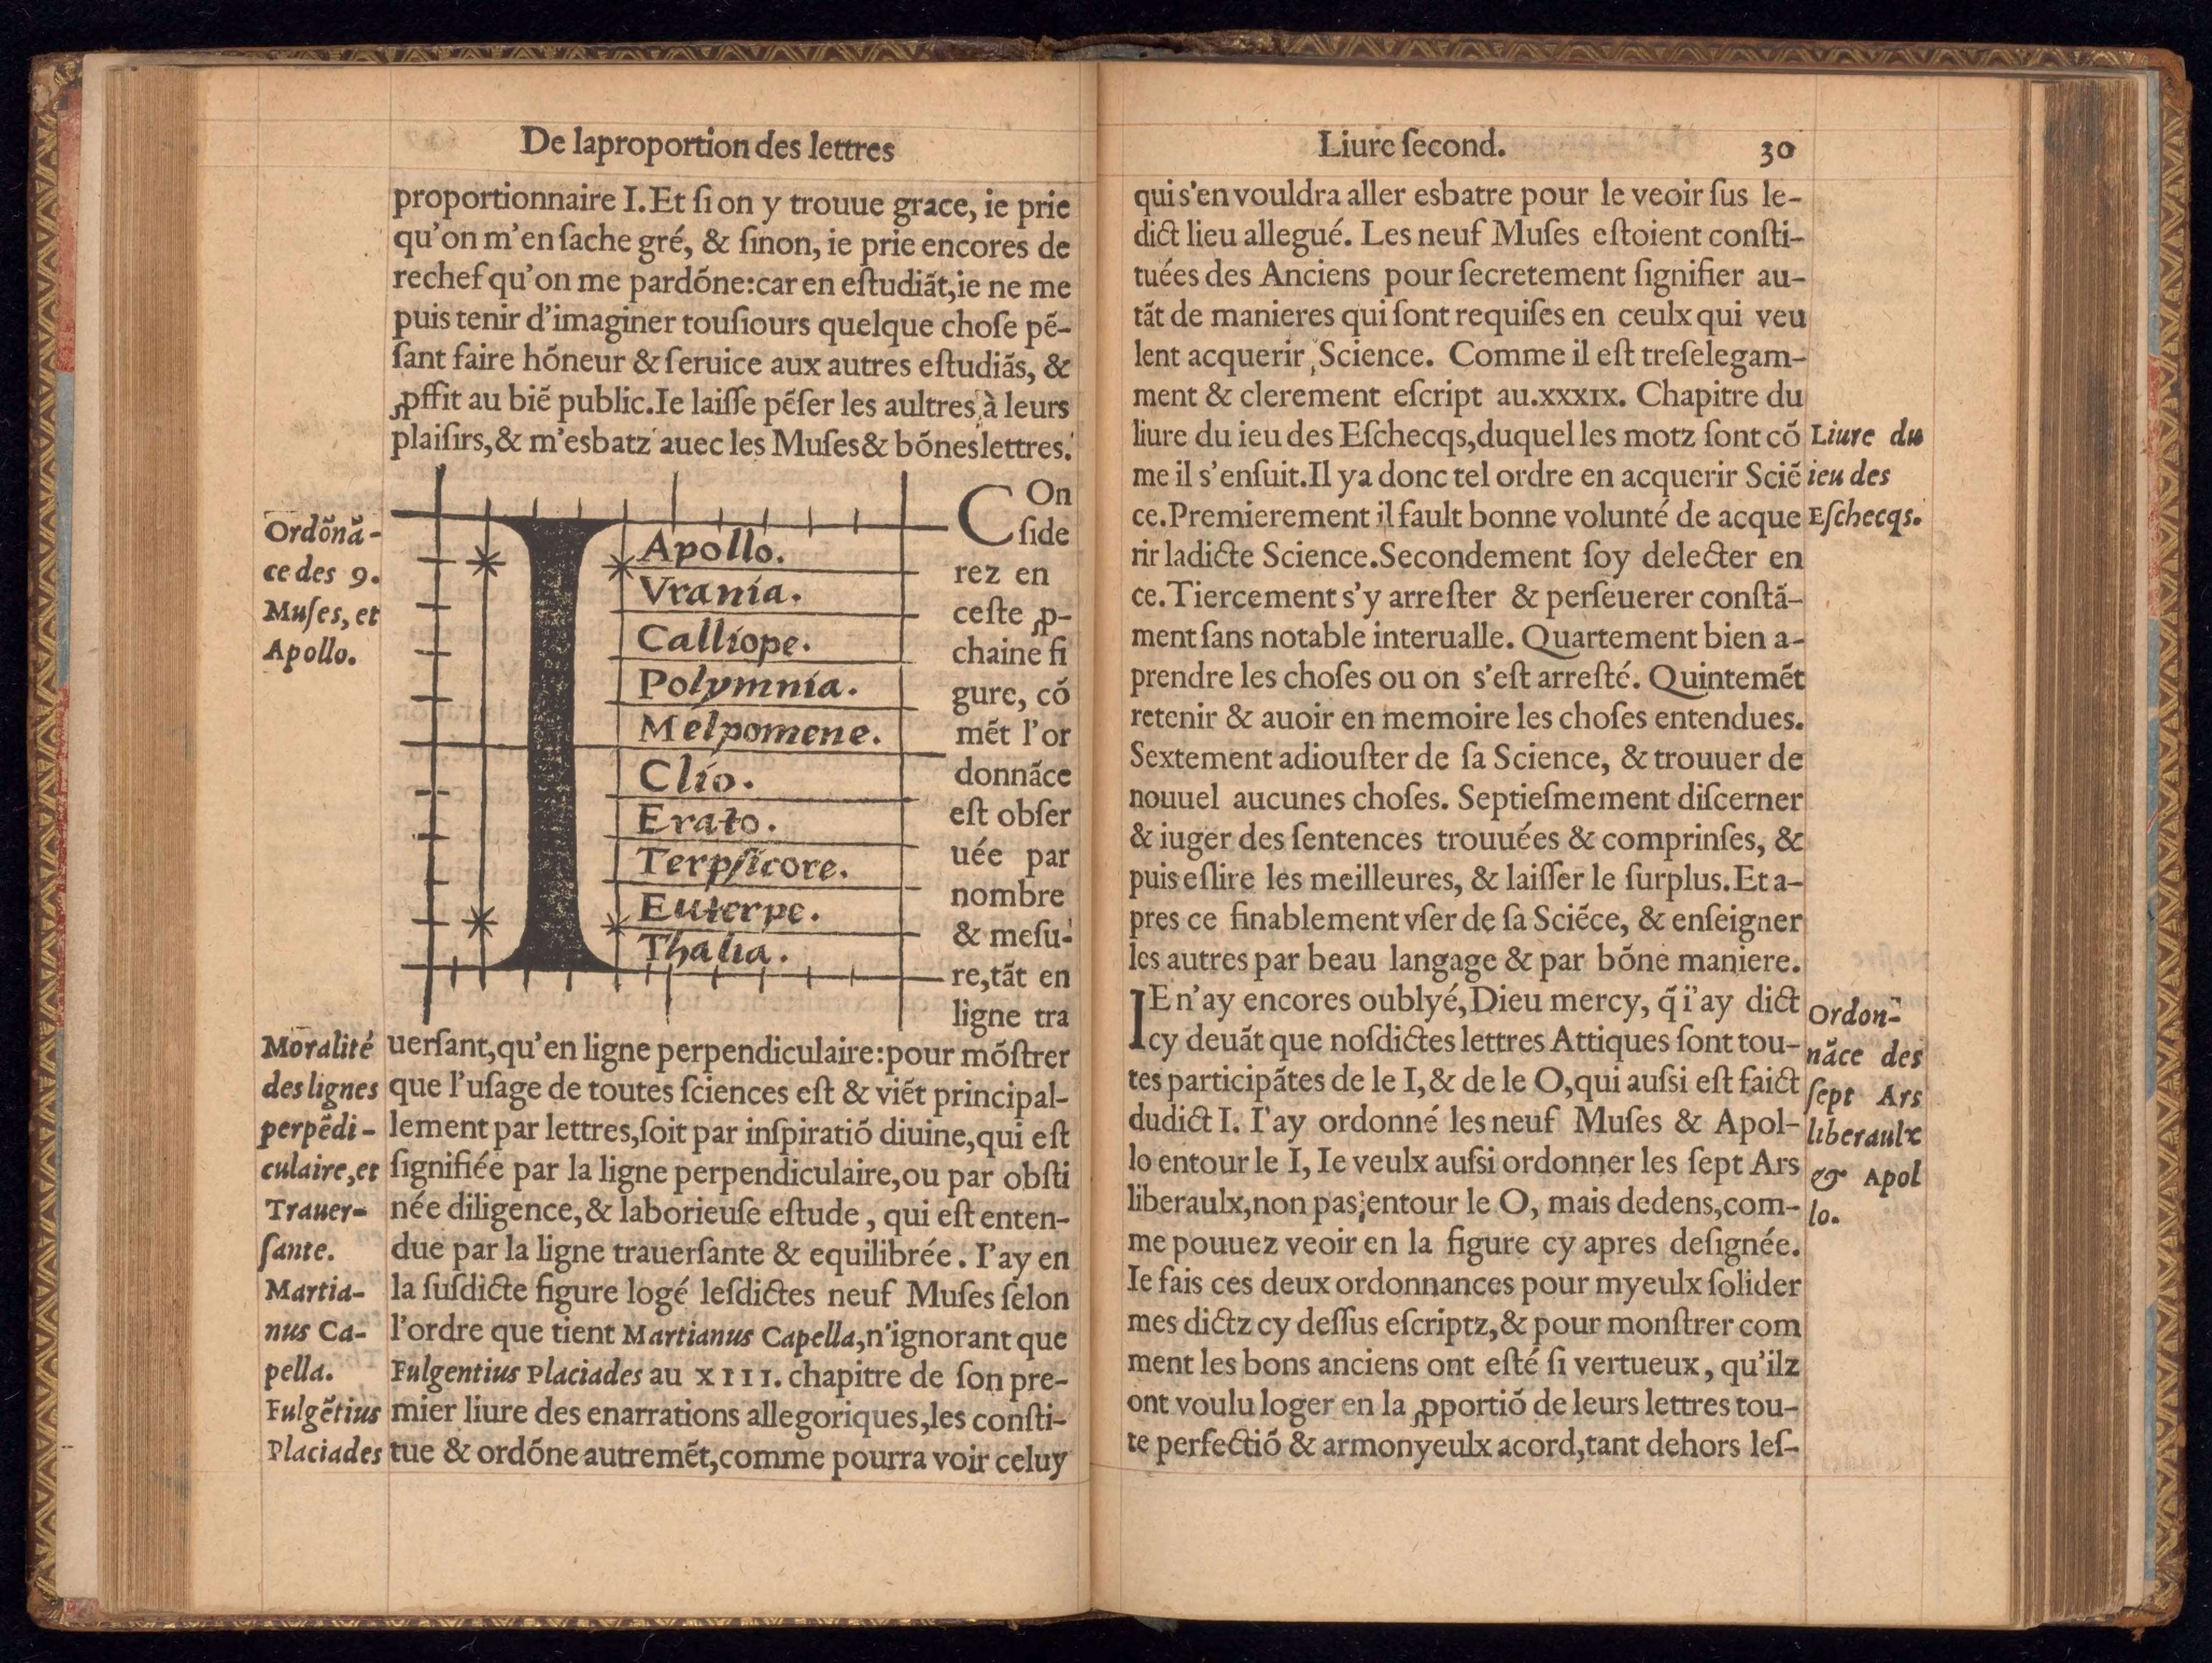 De laproportion des lettres
proportionnaire I. Et ſi on y trouue grace, ie prie
qu'on m'en ſache gré, & ſinon, ie prie encores de
rechef qu'on me pardõne: car en eſtudiãt, ie ne me
puis tenir d'imaginer touſiours quelque choſe pẽ-
ſant faire hõneur & ſeruice aux autres eſtudiãs, &
ꝓffit au biẽ public. Ie laiſſe pẽſer les aultres à leurs
plaiſirs, & m'esbatz auec les Muſes & bõnes lettres.
Ordõnã-
ce des 9.
Muſes, et
Apollo.
Apollo.
Vrania.
Calliope.
Polymnia.
Melpomene.
Clio.
Erato.
Terpſicore.
Euterpe.
Thalia.
COn
ſide
rez en
ceſte ꝓ-
chaine fi
gure, cõ
mẽt l'or
donnãce
eſt obſer
uée par
nombre
& meſu-
re, tãt en
ligne tra
uerſant, qu'en ligne perpendiculaire: pour mõſtrer
que l'uſage de toutes ſciences eſt & viẽt principal-
lement par lettres, ſoit par inſpiratiõ diuine, qui eſt
ſignifiée par la ligne perpendiculaire, ou par obſti
née diligence, & laborieuſe eſtude, qui eſt enten-
due par la ligne trauerſante & equilibrée. I'ay en
la ſuſdicte figure logé leſdictes neuf Muſes ſelon
l'ordre que tient Martianus Capella, n'ignorant que
Fulgentius Placiades au XIII. chapitre de ſon pre-
mier liure des enarrations allegoriques, les conſti-
tue & ordõne autremẽt, comme pourra voir celuy
Moralité
des lignes
perpẽdi-
culaire, et
Trauer-
ſante.
Martia-
nus Ca-
pella.
Fulgẽtius
Placiades
Liure ſecond. 30
qui s'en vouldra aller esbatre pour le veoir ſus le-
dict lieu allegué. Les neuf Muſes eſtoient conſti-
tuées des Anciens pour ſecretement ſignifier au-
tãt de manieres qui ſont requiſes en ceulx qui veu
lent acquerir Science. Comme il eſt treſelegam-
ment & clerement eſcript au. xxxIx. Chapitre du
liure du ieu des Eſchecqs, duquel les motz ſont cõ
me il s'enſuit. Il ya donc tel ordre en acquerir Sciẽ
ce. Premierement il fault bonne volunté de acque
rir ladicte Science. Secondement ſoy delecter en
ce. Tiercement s'y arreſter & perſeuerer conſtã-
ment ſans notable interualle. Quartement bien a-
prendre les choſes ou on s'eſt arreſté. Quintemẽt
retenir & auoir en memoire les choſes entendues.
Sextement adiouſter de ſa Science, & trouuer de
nouuel aucunes choſes. Septieſmement diſcerner
& iuger des ſentences trouuées & comprinſes, &
puis eſlire les meilleures, & laiſſer le ſurplus. Et a-
pres ce finablement vſer de ſa Sciẽce, & enſeigner
les autres par beau langage & par bõne maniere.
IEn'ay encores oublyé, Dieu mercy, q̃ i'ay dict
cy deuãt que noſdictes lettres Attiques ſont tou-
tes participãtes de le I, & de le O, qui auſsi eſt faict
dudict I. I'ay ordonné les neuf Muſes & Apol-
lo entour le I, Ie veulx auſsi ordonner les ſept Ars
liberaulx, non pas entour le O, mais dedens, com-
me pouuez veoir en la figure cy apres deſignée.
Ie fais ces deux ordonnances pour myeulx ſolider
mes dictz cy deſſus eſcriptz, & pour monſtrer com
ment les bons anciens ont eſté ſi vertueux, qu'ilz
ont voulu loger en la ꝓportiõ de leurs lettres tou-
te perfectiõ & armonyeulx acord, tant dehors leſ-
Liure du
ieu des
Eſchecqs.
Ordon-
nãce des
ſept Ars
liberaulx
& Apol
lo.